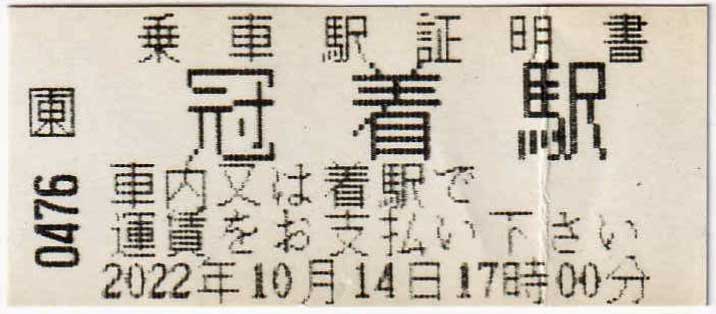 乗車駅証明書
冠着駅
東
0476
車内又は着駅で
運賃をお支払い下さい
2022年10月14日17時00分